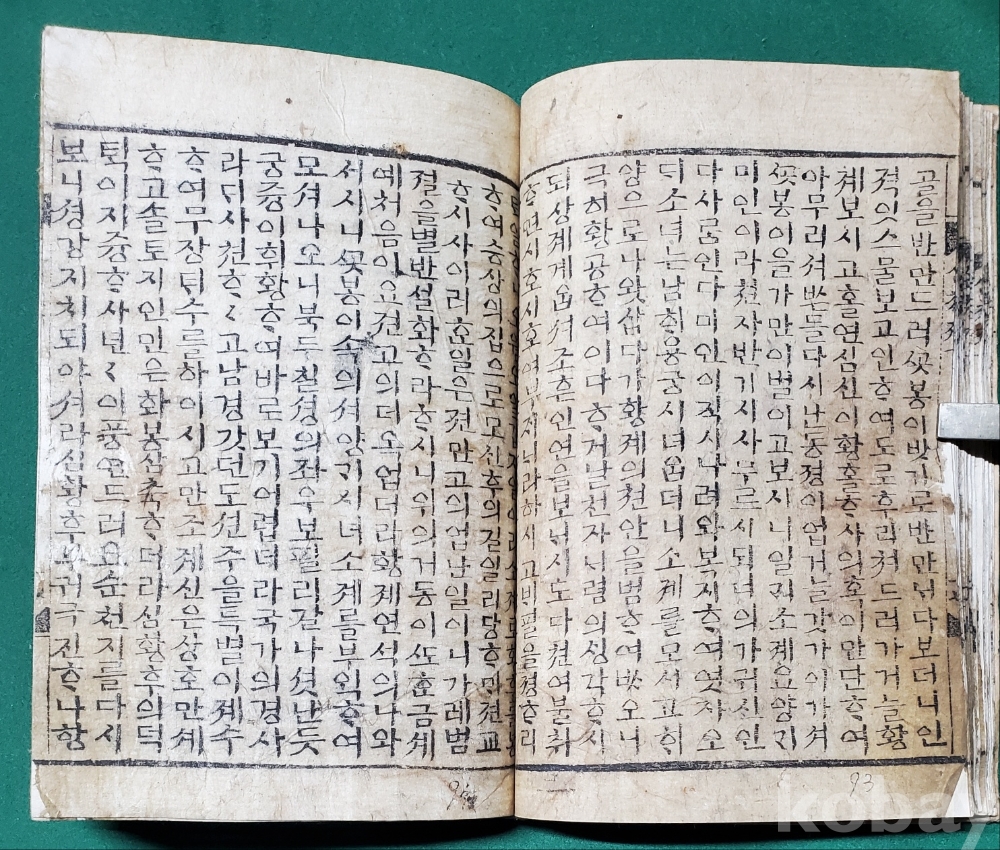 골을반만드러ᄭᅩᆺ봉이밧긔로반만ᄂᆡ다보더니인
젹잇스물보고인ᄒᆞ여도로후리쳐드러가거늘황
졔보시고홀연심신이황홀ᄒᆞ사의혹이만단ᄒᆞ여
아무리셔ᄯᅳᆫ들다시난동졍이업거늘갓가이가셔
ᄭᅩᆺ봉이을가만이벌이고보시니일ᄀᆡ소졔요양ᄀᆡ
미인이라쳔ᄌᆞ반기시사무르시되너의가귀신인
다사ᄅᆞᆷ인다미인이직시나려와복지ᄒᆞ여엿ᄌᆞ오
ᄃᆡ소녀는남ᄒᆡ용궁시녀옵더니소졔를모시고ᄒᆡ
양으로나왓삽다가황졔의쳔안을범ᄒᆞ여ᄊᆞ오니
극히황공ᄒᆞ여이다ᄒᆞ거날쳔ᄌᆞ시렴의ᄉᆡᆼ각ᄒᆞ시
되상졔게옵셔조흔인연을보ᄂᆡ시도다쳔여불취
ᄒᆞ면시호시호여부ᄌᆡᄂᆡ라하시고ᄇᆡ필을졍ᄒᆞ리
ᄒᆞ여승상의집으로모신후의길일리당ᄒᆞᄆᆡ젼교
ᄒᆞ시사이러호일은젼만고의업난일이니가례범
졀을별반셜화ᄒᆞ라ᄒᆞ시니위의거동이ᄯᅩ호금셰
예처음이요젼고의더옥업더라황졔연석의나와
서시니ᄭᅩᆺ봉이속의셔양ᄀᆡ시녀소졔를부익ᄒᆞ여
모셔나오니북두칠셩의좌우보필리갈나셧난듯
궁즁이휘황ᄒᆞ여바로보기어렵더라국가의경사
라ᄃᆡ사쳔ᄒᆞ〻고남경갓던도션주을특별이졔수
ᄒᆞ여무장ᄐᆡ수를하이시고만조졔신은상호만셰
ᄒᆞ고솔토지인민은화봉삼축ᄒᆞ더라심황후의덕
ᄐᆡᆨ이지즁ᄒᆞ사년〻의풍연드러요순쳔지를다시
보니셩강지치되야셔라심황후부귀극진ᄒᆞ나항
93
kobay